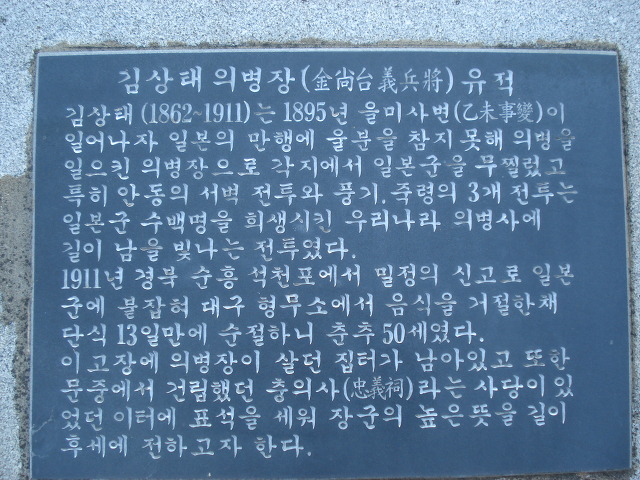 김상태 의병장(金尙台義兵將) 유적
김상태(1862~1911)는 1895년 을미사변(乙未事變)이
일어나자 일본의 만행에 울분을 참지 못해 의병을
일으킨 의병장으로 각지에서 일본군을 무찔렀고
특히 안동의 서벽 전투와 풍기.죽령의 3개 전투는
일본군 수백명을 희생시킨 우리나라 의병사에
길이 남을 빛나는 전투였다.
1911년 경북 순흥 석천포에서 밀정의 신고로 일본
군에 붙잡혀 대구 형무소에서 음식을 거절한채
단식 13일만에 순절하니 춘추 50세였다.
이 고장에 의병장이 살던 집터가 남아있고 또한
문중에서 건립했던 충의사(忠義祠)라는 사당이 있
었던 이터에 표석을 세워 장군의 높은뜻을 길이
후세에 전하고자 한다.